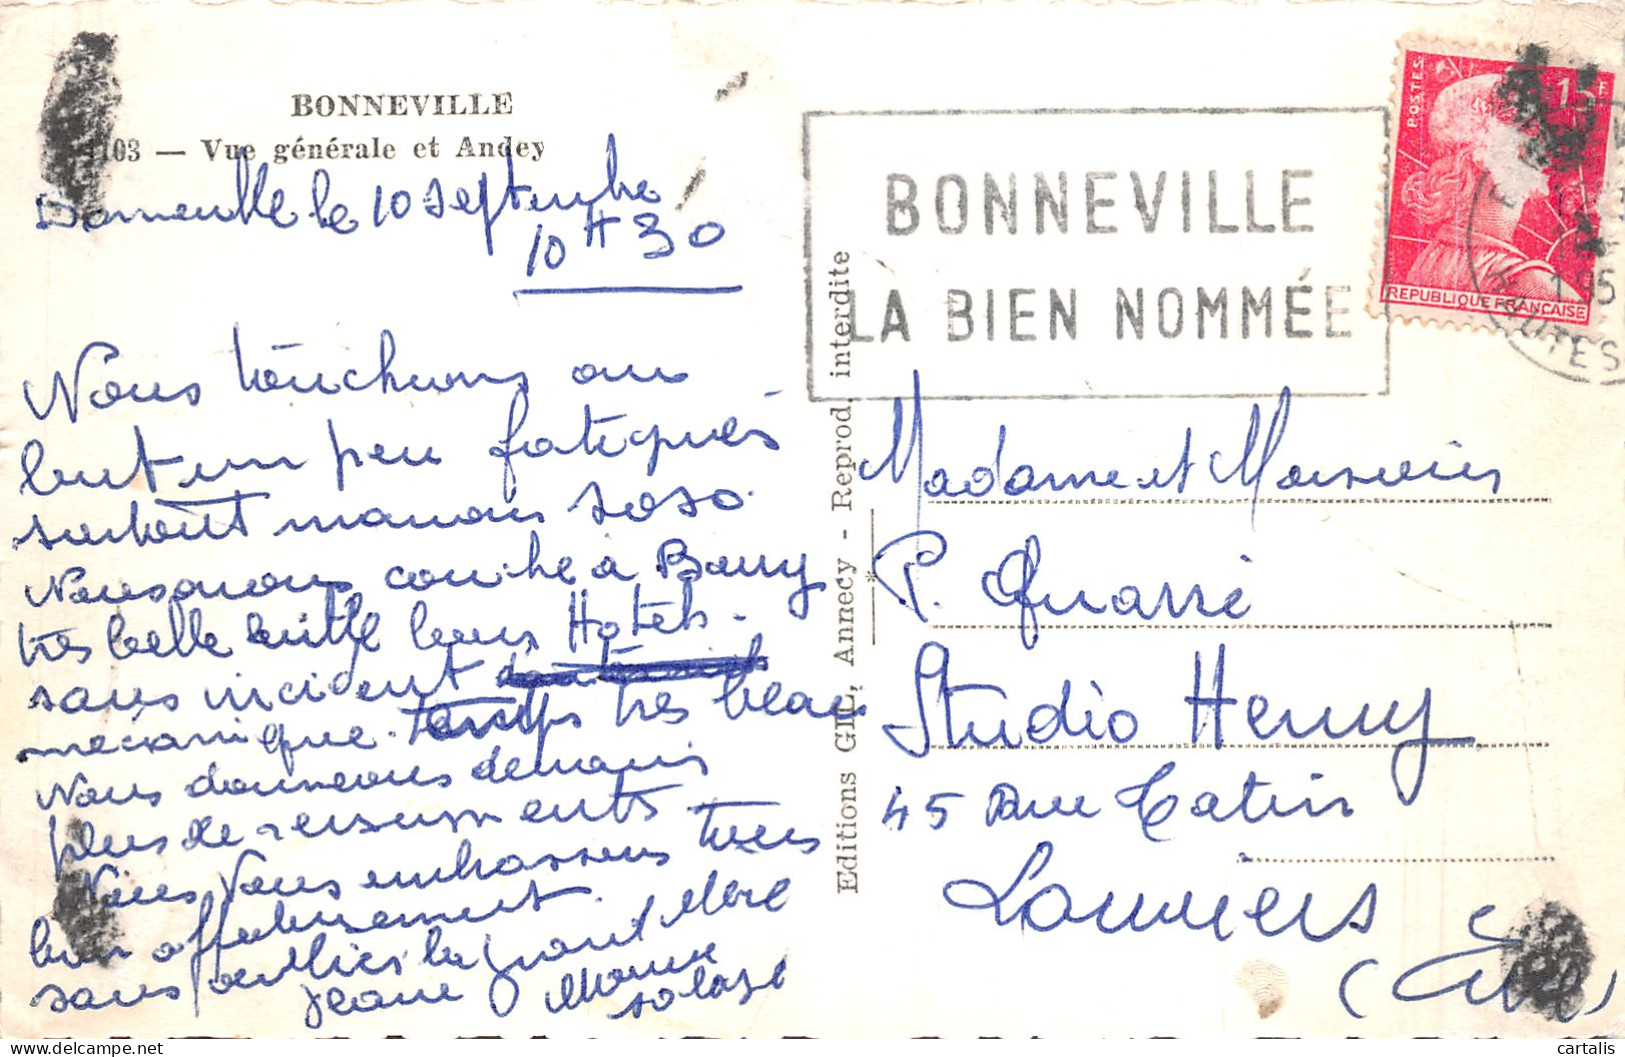 BONNEVILLE
103 — Vue générale et Andey
Bonneville le 10 septembre
10 H 30
Nous touchons au
but un peu fatigués
surtout maman soso.
Nous avons couché à Bourg
très belle ville bons Hotels.
sans incident
mécanique. temps très beau
Nous donnerons demain
plus de
Nous vous embrassons tous
bien affectueusement.
sans oublier la grand Mère
Jeanne
Editions GIL, Annecy - Reprod. interdite
BONNEVILLE
LA BIEN NOMMÉE
POSTES
15F
REPUBLIQUE FRANÇAISE
195
HAUTES
Madame et Monsieur
P. Quarré
Studio Henry
45 Rue Tatin
Louviers
(Eure)
cartalis